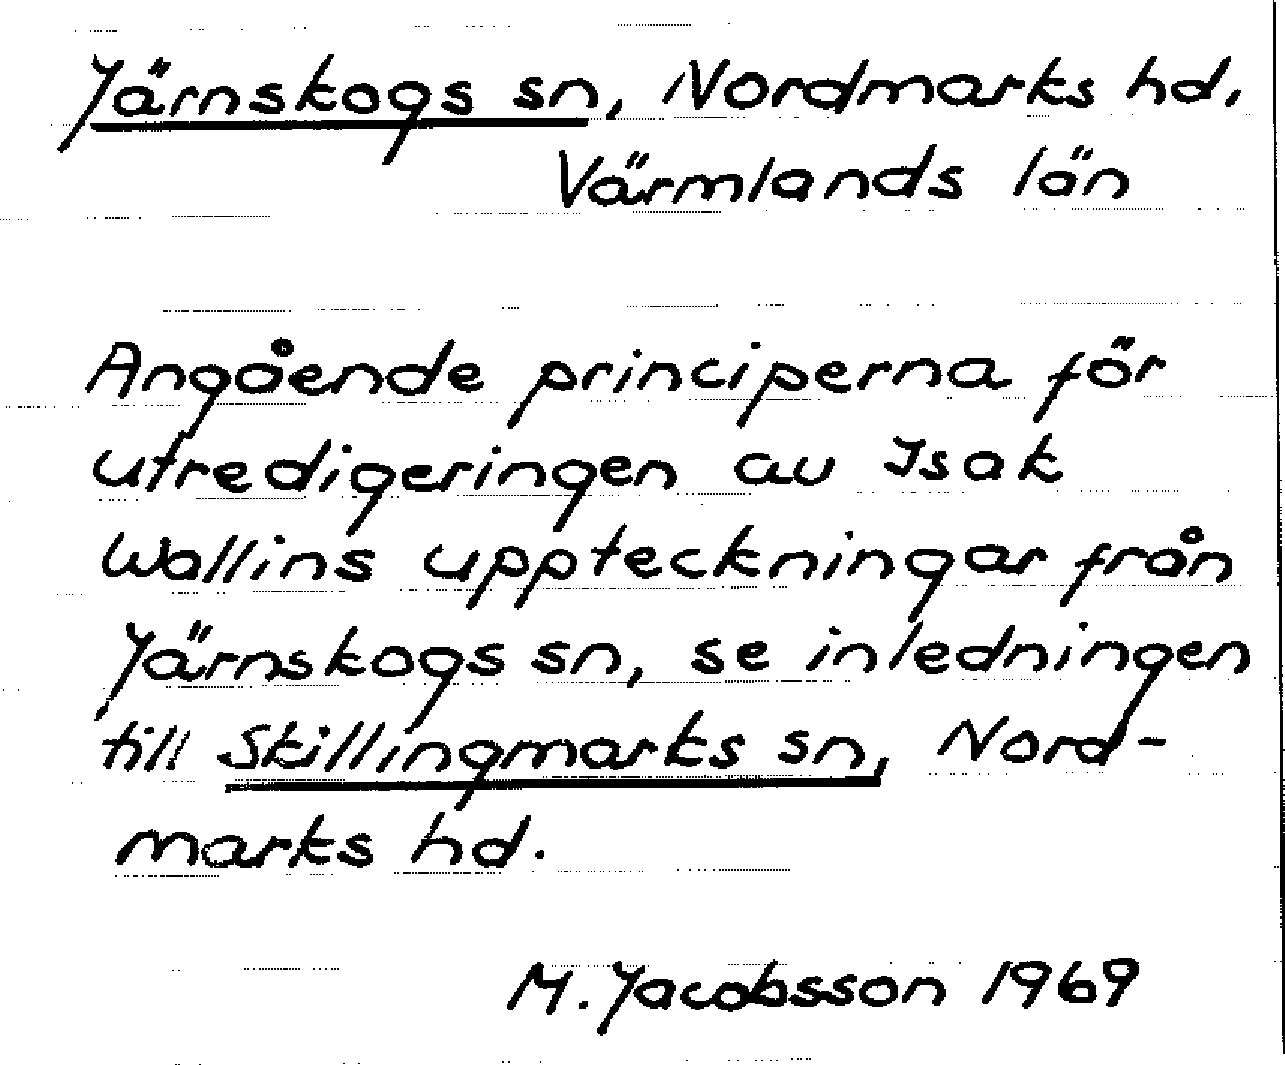 Järnskogs sn, Nordmarks hd,
Värmlands län
Angående principerna för
utredigeringen av Isak
Wallins uppteckningar från
Järnskogs sn, se inledningen
till Skillingmarks sn, Nord-
marks hd.
M. Jacobsson 1969